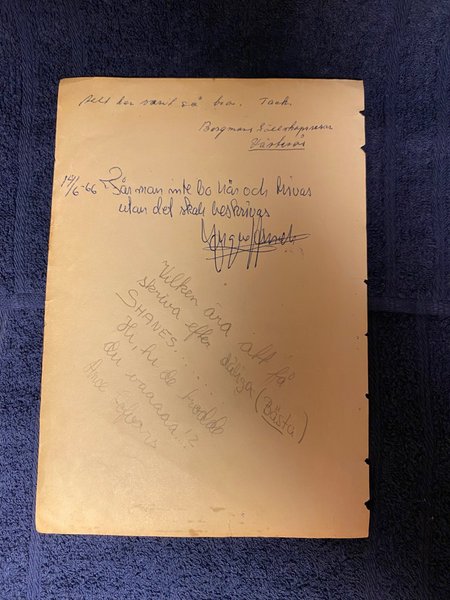 Allt har varit så bra. Tack.
Bergmans Sällskapsresor
Västerås
14/6-66 Får man inte bo här och trivas
utan det skall beskrivas
Vilken ära att få
skriva efter dåliga (Bästa)
SHANES......
Hi, hi de trodde
du vaaaaa!?